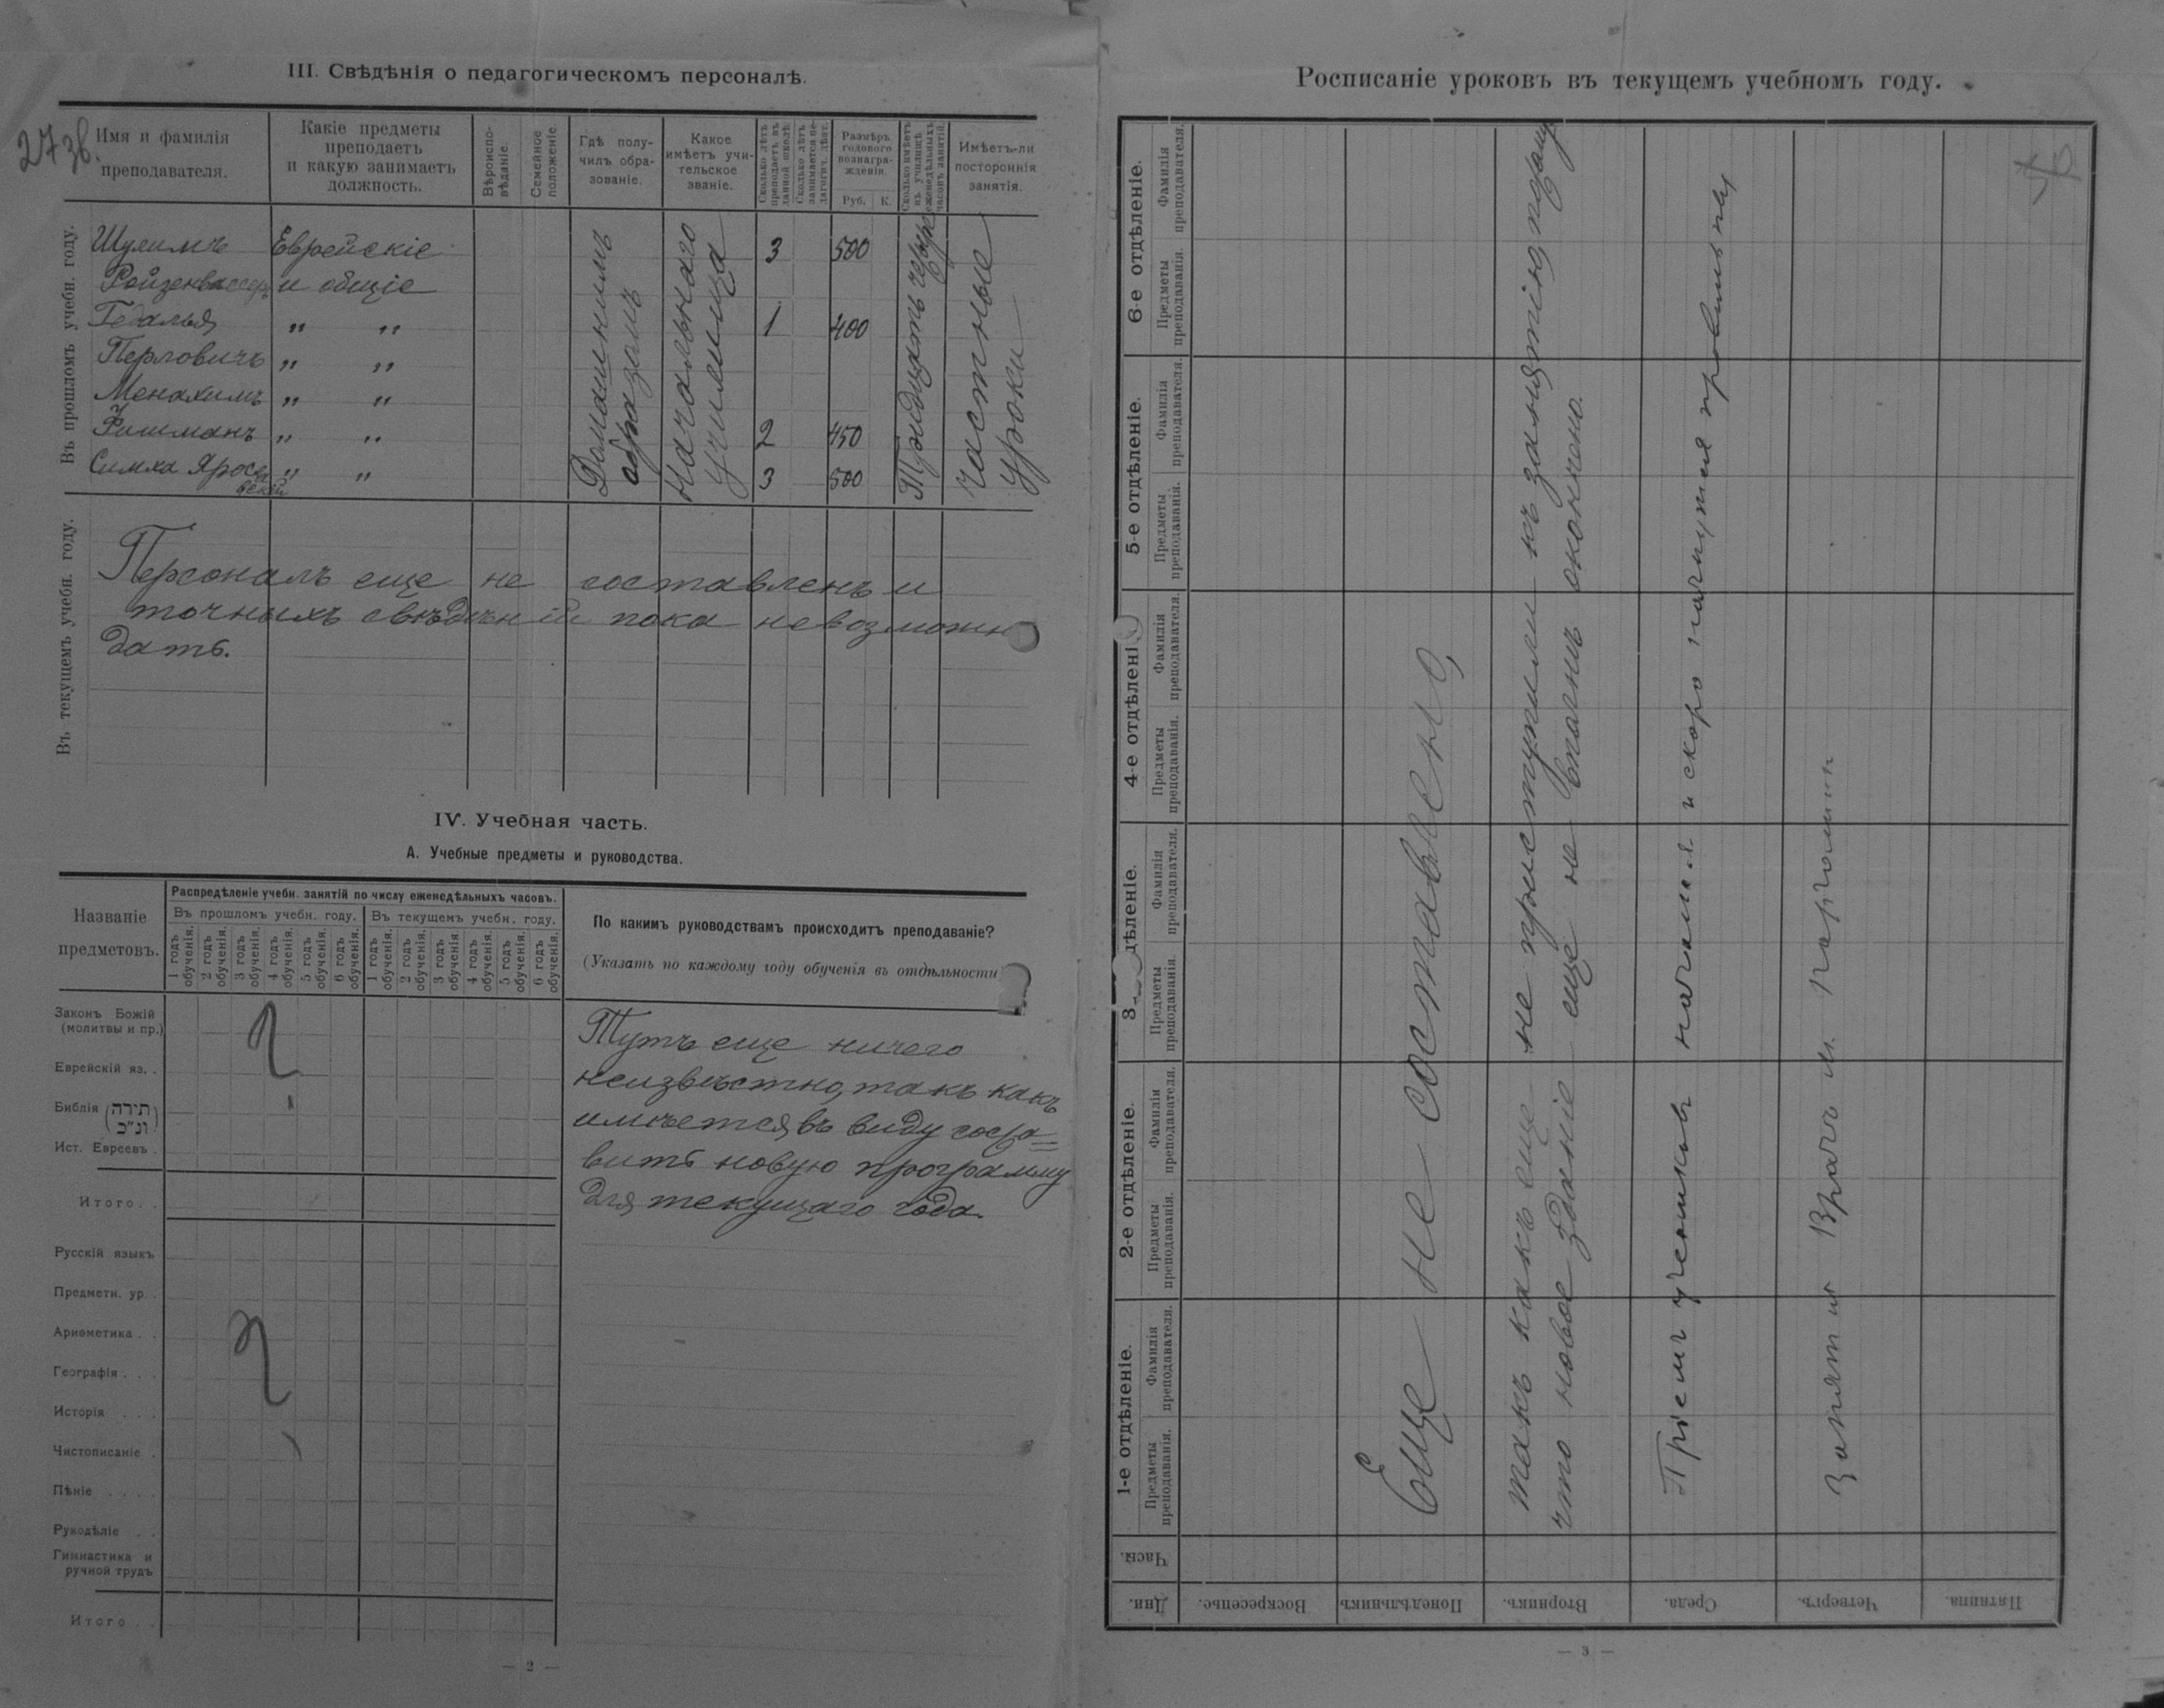 III. Свѣдѣнія о педагогическомъ персоналѣ.
273б.
Имя и фамилія
преподавателя.
Какіе предметы
преподаетъ
и какую занимаетъ
должность.
Вѣроиспо-
вѣданіе.
Семейное
положеніе.
Гдѣ полу-
чилъ обра-
зованіе.
Какое
имѣетъ учи-
тельское
званіе.
Сколько лѣтъ
преподаетъ въ
данной школѣ.
Сколько лѣтъ
занимается пе-
дагогич. дѣят.
Размѣръ
годового
вознагра-
жденія.
Руб. К.
Сколько имѣетъ
въ училищѣ
еженедѣльныхъ
часовъ занятій.
Имѣетъ-ли
постороннія
занятія.
Въ прошломъ учебн. году.
Шулимъ Еврейскіе 3 500
Ройзенвассеръ и общіе
Гедалья " " 1 400
Перловичъ " "
Менахимъ " "
Фишманъ " " 2 450
Симха Яросла " " 3 500
вскій
Домашнимъ
образомъ
Начальнаго
училища
Тридцать четыре
частные
уроки
Въ текущемъ учебн. году.
Персоналъ еще не составленъ и
точныхъ свѣдѣній пока невозможно
дать.
IV. Учебная часть.
А. Учебные предметы и руководства.
Названіе
предметовъ.
Распредѣленіе учебн. занятій по числу еженедѣльныхъ часовъ.
Въ прошломъ учебн. году. Въ текущемъ учебн. году.
1 годъ обученія. 2 годъ обученія. 3 годъ обученія. 4 годъ обученія. 5 годъ обученія. 6 годъ обученія. 1 годъ обученія. 2 годъ обученія. 3 годъ обученія 4 годъ обученія. 5 годъ обученія. 6 годъ обученія.
По какимъ руководствамъ происходитъ преподаваніе?
(Указать по каждому году обученія въ отдѣльности
Законъ Божій
(молитвы и пр.)
Еврейскій яз. .
Библія (תורה ונ״כ)
Ист. Евреевъ .
Итого . .
Русскій языкъ
Предметн. ур. .
Ариѳметика . .
Географія . . .
Исторія . . .
Чистописаніе .
Пѣніе . . . .
Рукодѣліе . .
Гимнастика и
ручной трудъ
Итого . .
Тутъ еще ничего
неизвѣстно, такъ какъ
имѣется въ виду соста=
вить новую программу
для текущаго года.
— 2 —
Росписаніе уроковъ въ текущемъ учебномъ году.
6-е отдѣленіе.
Фамилія преподавателя.
Предметы преподаванія.
5-е отдѣленіе.
Фамилія преподавателя.
Предметы преподаванія.
4-е отдѣлені
Фамилія преподавателя.
Предметы преподаванія.
3 дѣленіе.
Фамилія преподавателя.
Предметы преподаванія.
2-е отдѣленіе.
Фамилія преподавателя.
Предметы преподаванія.
1-е отдѣленіе.
Фамилія преподавателя.
Предметы преподаванія.
Часы.
Дни. Воскресенье. Понедѣльникъ Вторникъ. Среда. Четвергъ. Пятница.
Еще не составлено,
такъ какъ еще не приступили къ занятію,
что новое зданіе еще не окончено.
Пріемъ учениковъ начался и скоро начнутся
Врачъ м.
— 3 —